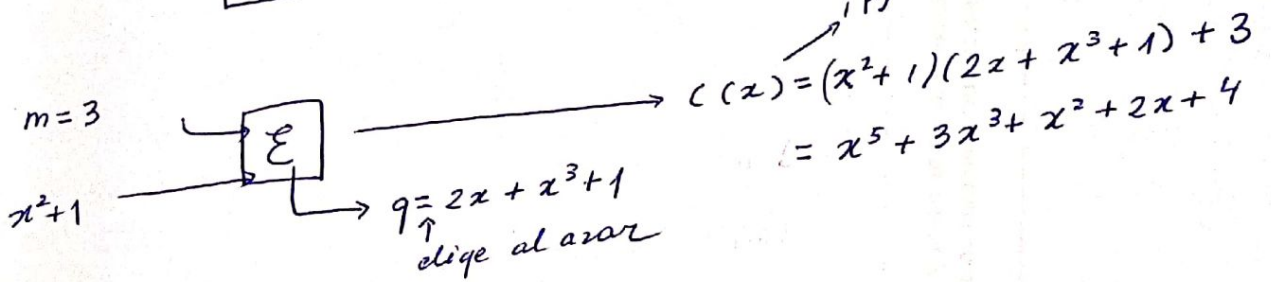 m = 3
x²+1
ℰ
q = 2x + x³ + 1
↑
elige al azar
C(x) = (x²+1)(2x + x³ + 1) + 3
= x⁵ + 3x³ + x² + 2x + 4